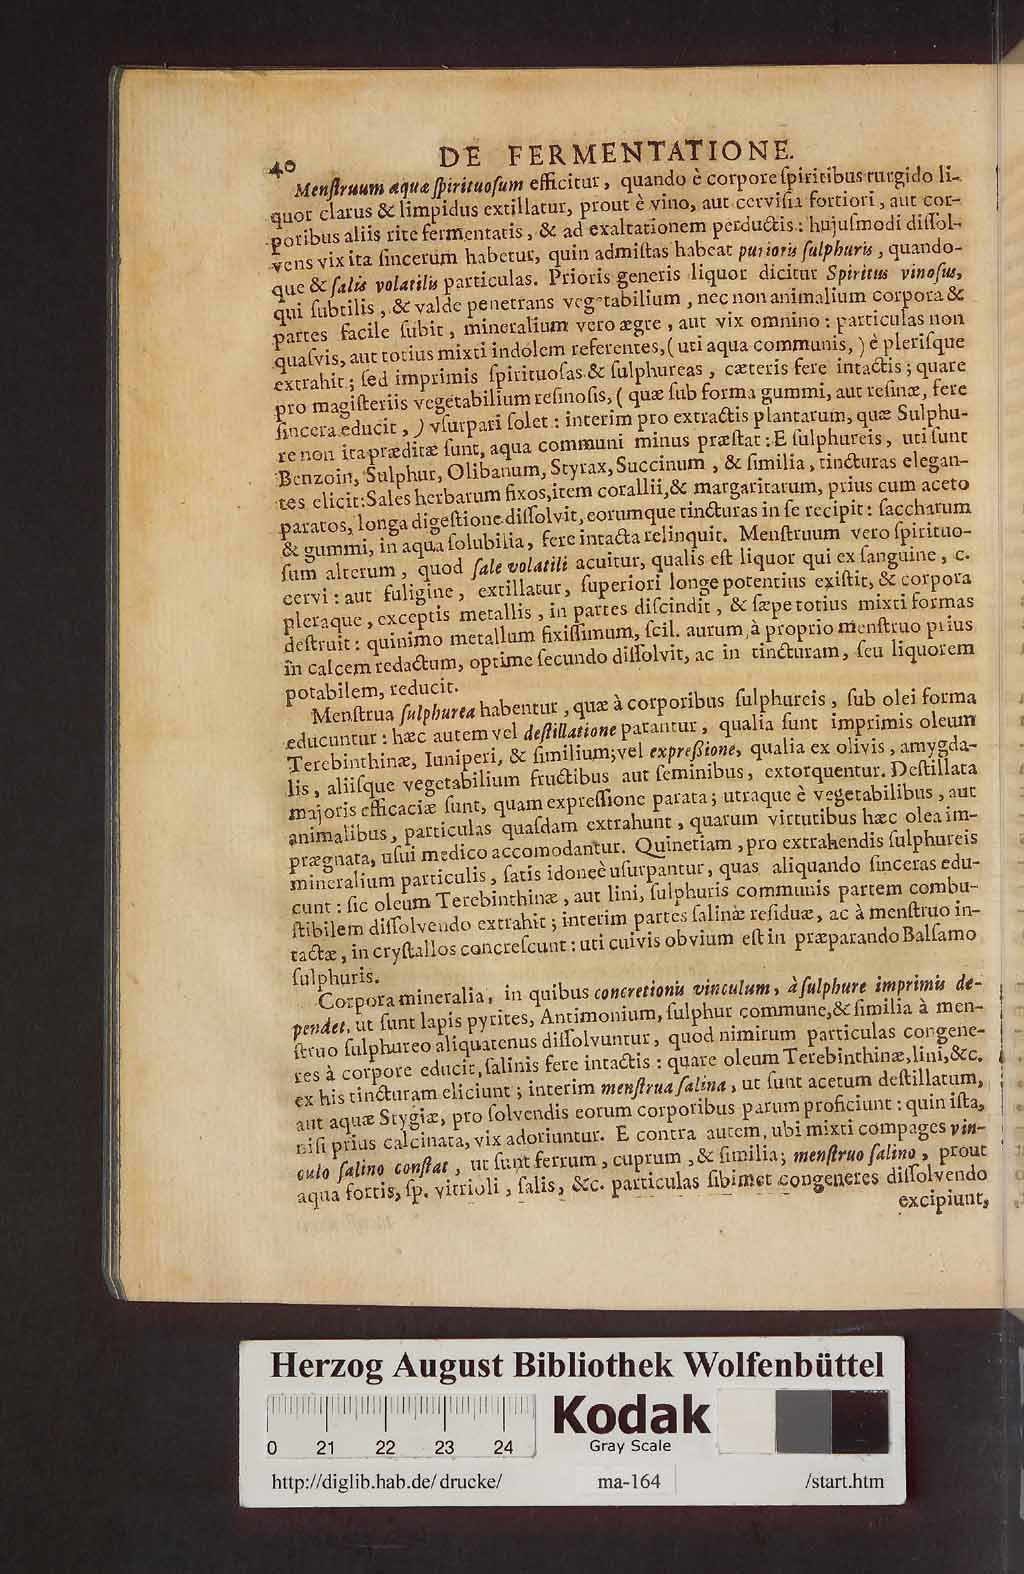 40
DE FERMENTATIONE.
Menſtruum aquæ ſpirituoſum efficitur, quando è corpore ſpiritibus turgido li-
quor clarus & limpidus extillatur, prout è vino, aut cerviſia fortiori, aut cor-
poribus aliis rite fermentatis, & ad exaltationem perductis: hujuſmodi diſſol-
vens vix ita ſincerum habetur, quin admiſtas habeat purioris ſulphuris, quando-
que & ſalis volatilis particulas. Prioris generis liquor dicitur Spiritus vinoſus,
qui ſubtilis, & valde penetrans vegetabilium, nec non animalium corpora &
partes facile ſubit, mineralium vero ægre, aut vix omnino: particulas non
quaſvis, aut totius mixti indolem referentes, (uti aqua communis,) è pleriſque
extrahit; ſed imprimis ſpirituoſas & ſulphureas, cæteris fere intactis; quare
pro magiſteriis vegetabilium reſinoſis, (quæ ſub forma gummi, aut reſinæ, fere
ſincera educit,) vſurpari ſolet: interim pro extractis plantarum, quæ Sulphu-
re non ita præditæ ſunt, aqua communi minus præſtat: E ſulphureis, uti ſunt
Benzoin, Sulphur, Olibanum, Styrax, Succinum, & ſimilia, tincturas elegan-
tes elicit: Sales herbarum fixos, item corallii, & margaritarum, prius cum aceto
paratos, longa digeſtione diſſolvit, eorumque tincturas in ſe recipit: ſaccharum
& gummi, in aqua ſolubilia, fere intacta relinquit. Menſtruum vero ſpirituo-
ſum alterum, quod ſale volatili acuitur, qualis eſt liquor qui ex ſanguine, c.
cervi: aut fuligine, extillatur, ſuperiori longe potentius exiſtit, & corpora
pleraque, exceptis metallis, in partes diſcindit, & ſæpe totius mixti formas
deſtruit: quinimo metallum fixiſſimum, ſcil. aurum, à proprio menſtruo prius
in calcem redactum, optime ſecundo diſſolvit, ac in tincturam, ſeu liquorem
potabilem, reducit.
Menſtrua ſulphurea habentur, quæ à corporibus ſulphureis, ſub olei forma
educuntur: hæc autem vel deſtillatione parantur, qualia ſunt imprimis oleum
Terebinthinæ, Iuniperi, & ſimilium; vel expreßione, qualia ex olivis, amygda-
lis, aliiſque vegetabilium fructibus aut ſeminibus, extorquentur. Deſtillata
majoris efficaciæ ſunt, quam expreſſione parata; utraque è vegetabilibus, aut
animalibus, particulas quaſdam extrahunt, quarum virtutibus hæc olea im-
prægnata, uſui medico accomodantur. Quinetiam, pro extrahendis ſulphureis
mineralium particulis, ſatis idoneè uſurpantur, quas aliquando ſinceras edu-
cunt: ſic oleum Terebinthinæ, aut lini, ſulphuris communis partem combu-
ſtibilem diſſolvendo extrahit; interim partes ſalinæ reſiduæ, ac à menſtruo in-
tactæ, in cryſtallos concreſcunt: uti cuivis obvium eſt in præparando Balſamo
ſulphuris.
Corpora mineralia, in quibus concretionis vinculum, à ſulphure imprimis de-
pendet, ut ſunt lapis pyrites, Antimonium, ſulphur commune, & ſimilia à men-
ſtruo ſulphureo aliquatenus diſſolvuntur, quod nimirum particulas congene-
res à corpore educit, ſalinis fere intactis: quare oleum Terebinthinæ, lini, &c.
ex his tincturam eliciunt; interim menſtrua ſalina, ut ſunt acetum deſtillatum,
aut aquæ Stygiæ, pro ſolvendis eorum corporibus parum proficiunt: quin iſta,
niſi prius calcinata, vix adoriuntur. E contra autem, ubi mixti compages vin-
culo ſalino conſtat, ut ſunt ferrum, cuprum, & ſimilia; menſtruo ſalino, prout
aqua fortis, ſp. vitrioli, ſalis, &c. particulas ſibimet congeneres diſſolvendo
excipiunt,
Herzog August Bibliothek Wolfenbüttel
0 21 22 23 24
Kodak
Gray Scale
http://diglib.hab.de/drucke/ ma-164 /start.htm